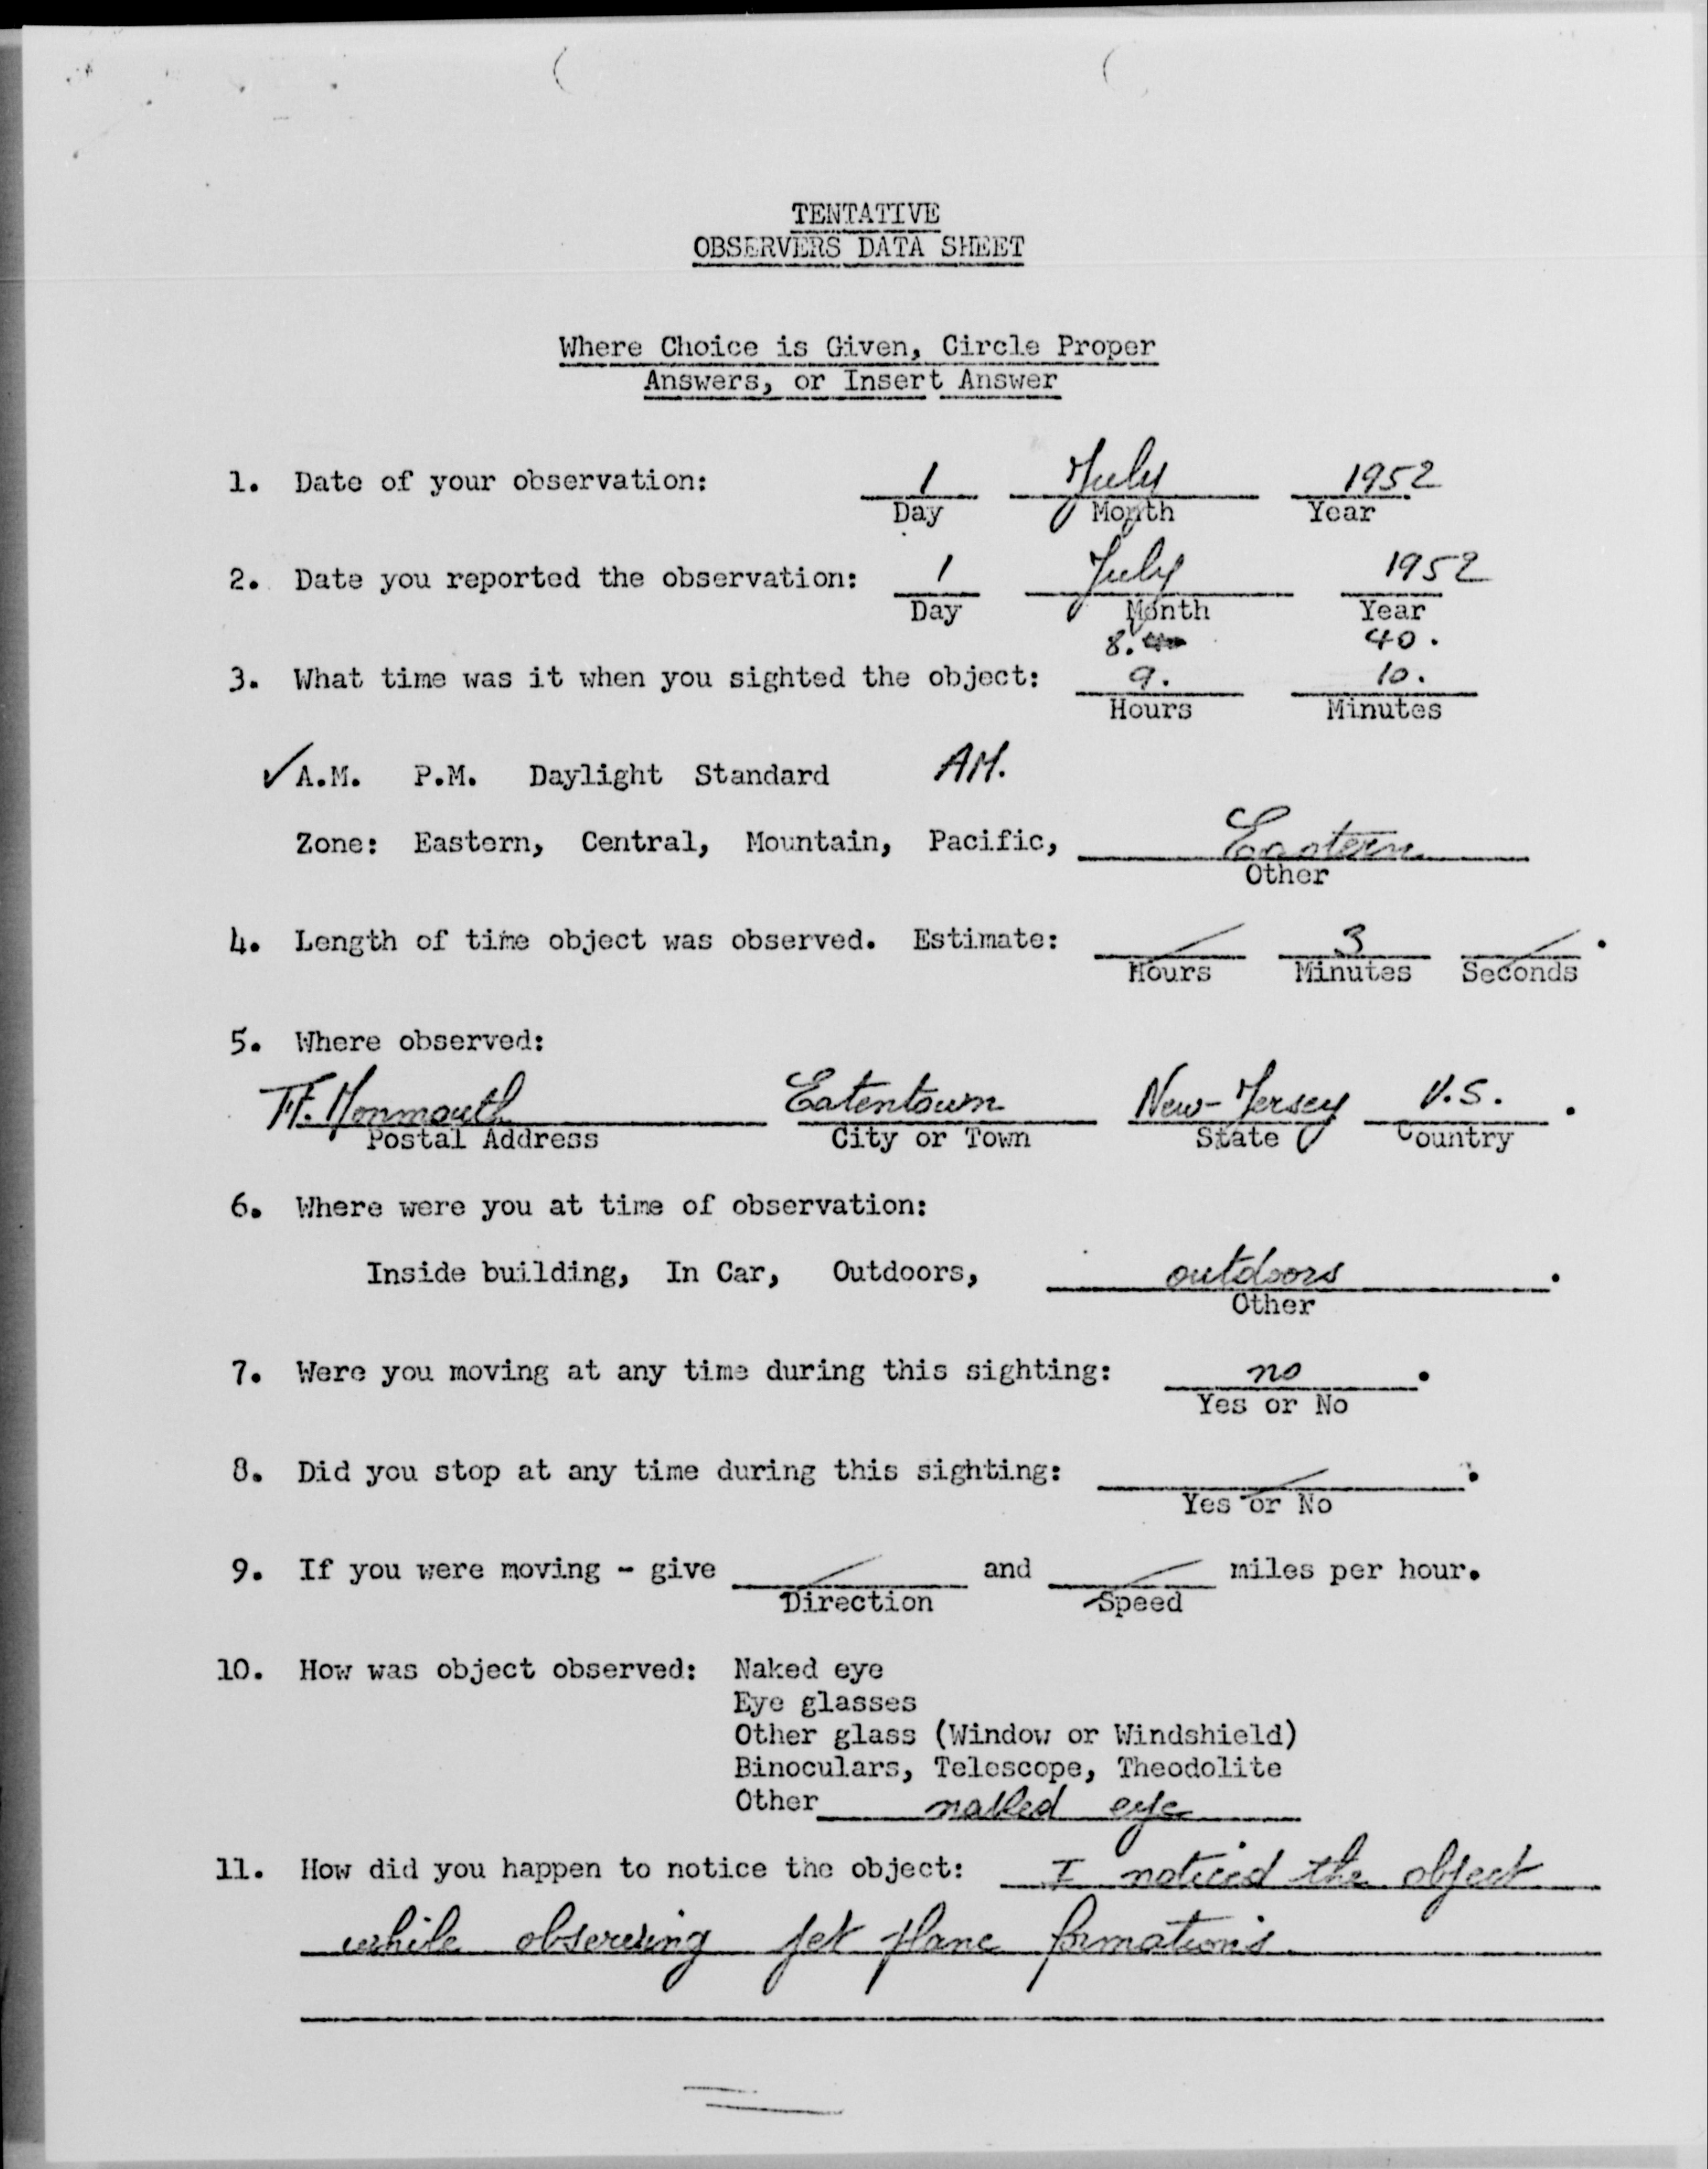 TENTATIVE
OBSERVERS DATA SHEET
Where Choice is Given, Circle Proper
Answers, or Insert Answer
1. Date of your observation: 1 July 1952
Day Month Year
2. Date you reported the observation: 1 July 1952
Day Month Year
8. 40.
3. What time was it when you sighted the object: 9. 10.
Hours Minutes
✓ A.M. P.M. Daylight Standard AM.
Zone: Eastern, Central, Mountain, Pacific, Eastern
Other
4. Length of time object was observed. Estimate: / 3 / .
Hours Minutes Seconds
5. Where observed:
Ft. Monmouth Eatentown New-Jersey U.S. .
Postal Address City or Town State Country
6. Where were you at time of observation:
Inside building, In Car, Outdoors, outdoors .
Other
7. Were you moving at any time during this sighting: no .
Yes or No
8. Did you stop at any time during this sighting: / .
Yes or No
9. If you were moving - give / and / miles per hour.
Direction Speed
10. How was object observed: Naked eye
Eye glasses
Other glass (Window or Windshield)
Binoculars, Telescope, Theodolite
Other naked eye
11. How did you happen to notice the object: I noticed the object
while observing jet plane formations